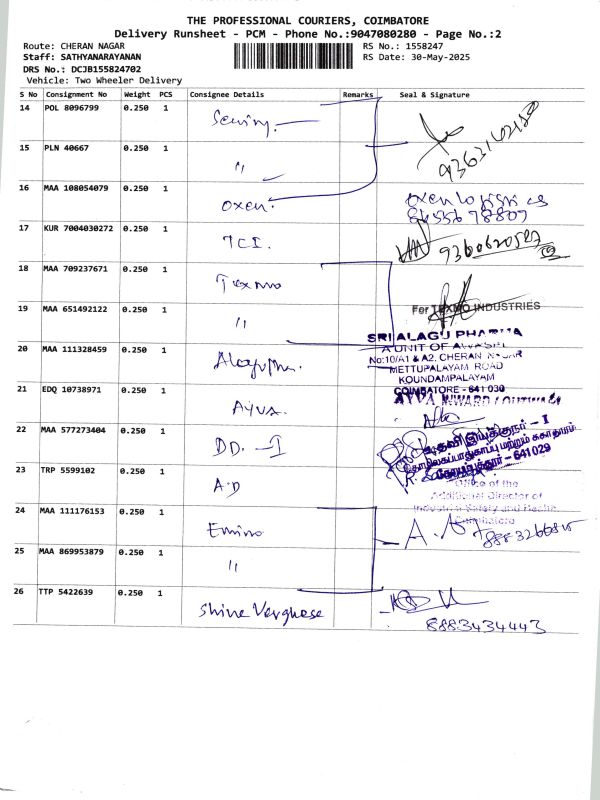 THE PROFESSIONAL COURIERS, COIMBATORE
Delivery Runsheet - PCM - Phone No.:9047080280 - Page No.:2
Route: CHERAN NAGAR
Staff: SATHYANARAYANAN
DRS No.: DCJB155824702
Vehicle: Two Wheeler Delivery
RS No.: 1558247
RS Date: 30-May-2025
S No Consignment No Weight PCS Consignee Details Remarks Seal & Signature
14 POL 8096799 0.250 1
15 PLN 40667 0.250 1 "
16 MAA 108054079 0.250 1 oxen.
oxen logistics
17 KUR 7004030272 0.250 1 TCI.
18 MAA 709237671 0.250 1 Texmo
19 MAA 651492122 0.250 1 "
For TEXMO INDUSTRIES
SRI ALAGU PHARMA
A UNIT OF
No:10/A1 & A2, CHERAN NAGAR
METTUPALAYAM ROAD
KOUNDAMPALAYAM
COIMBATORE - 641 030
20 MAA 111328459 0.250 1
21 EDQ 10738971 0.250 1 AYUA.
22 MAA 577273404 0.250 1 DD. - I
- 641029
23 TRP 5599102 0.250 1 A.D
Office of the
Additional Director of
Industrial Safety and Health
Coimbatore
24 MAA 111176153 0.250 1
25 MAA 869953879 0.250 1 "
26 TTP 5422639 0.250 1 Shine Verghese
8883434443